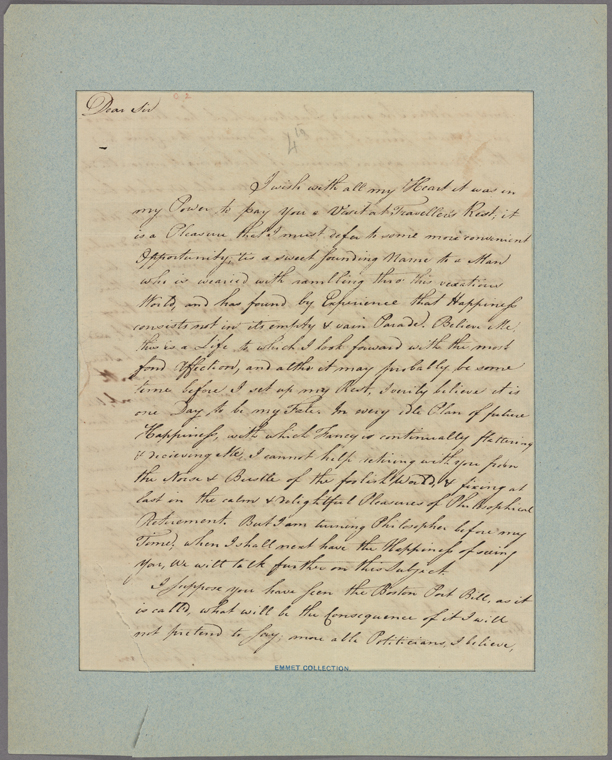 Dear Sir
4th
I wish with all my Heart it was in
my Power to pay you a Visit at Traveller's Rest; it
is a Pleasure that I must defer to some more convenient
Opportunity; tis a sweet sounding Name to a Man
who is wearied with rambling thro this vexatious
World, and has found by Experience that Happiness
consists not in its & vain Parade. Believe Me,
this is a Life to which I look forward with the most
fond Affection, and altho it may probably be some
time before I set up my Rest, I verily believe it is
one Day to be my Fate. In every idle Plan of future
Happiness, with which Fancy is continually flattering
& decieving Me, I cannot help retiring with you from
the Noise & Bustle of the foolish World, & fixing at
last in the calm & delightful Pleasures of Philosophical
Retirement. But I am turning Philosopher before my
Time; when I shall next have the Happiness of seeing
you, We will talk further on this Subject
I suppose you have seen the Boston Port Bill, as it
is calld, what will be the Consequence of it I will
not pretend to say; more able Politicians, I believe,
EMMET COLLECTION